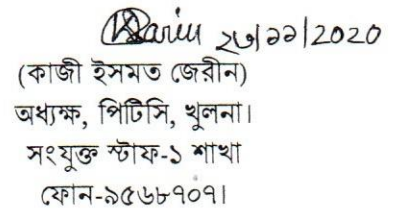 ২৬/১১/2020
(কাজী ইসমত জেরীন)
অধ্যক্ষ, পিটিসি, খুলনা।
সংযুক্ত স্টাফ-১ শাখা
ফোন-৯৫৬৮৭০৭।